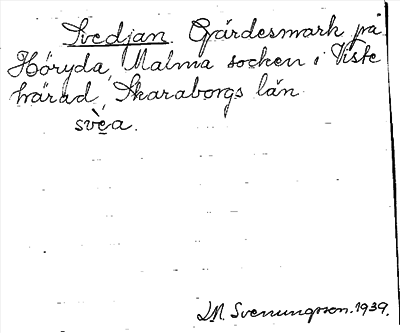 Svedjan. Gärdesmark på
Höryda, Malma socken i Viste
härad, Skaraborgs län
svèa.
L.M. Svenungsson. 1939.